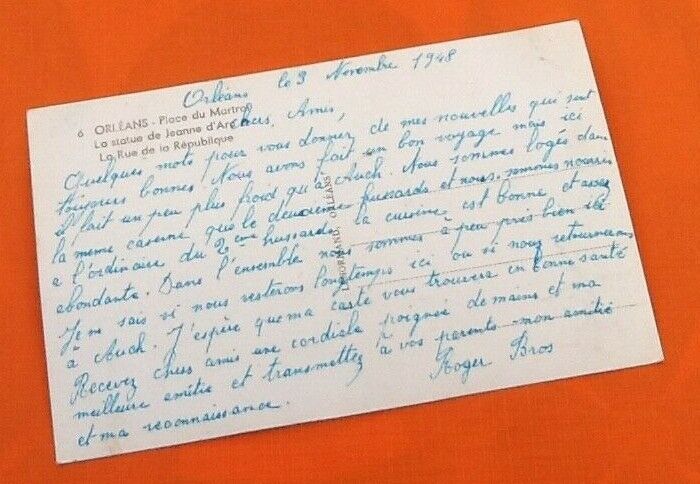 Orléans le 3 Novembre 1948
6 ORLÉANS - Place du Martroi
La statue de Jeanne d'Arc
La Rue de la République
Chers Amis,
Quelques mots pour vous donner de mes nouvelles qui sont
toujours bonnes Nous avons fait un bon voyage mais ici
il fait un peu plus froid qu'à Auch. Nous sommes logés dans
la même caserne que le deuxième hussards et nous sommes nourris
à l'ordinaire du 2eme hussards la cuisine est bonne et assez
abondante. Dans l'ensemble nous sommes à peu près bien ici
Je ne sais si nous resterons longtemps ici ou si nous retournerons
à Auch. J'espère que ma carte vous trouvera en bonne santé
Recevez chers amis une cordiale poignée de mains et ma
meilleure amitié et transmettez à vos parents mon amitié
et ma reconnaissance.
Roger Bros
LENORMAND, ORLÉANS